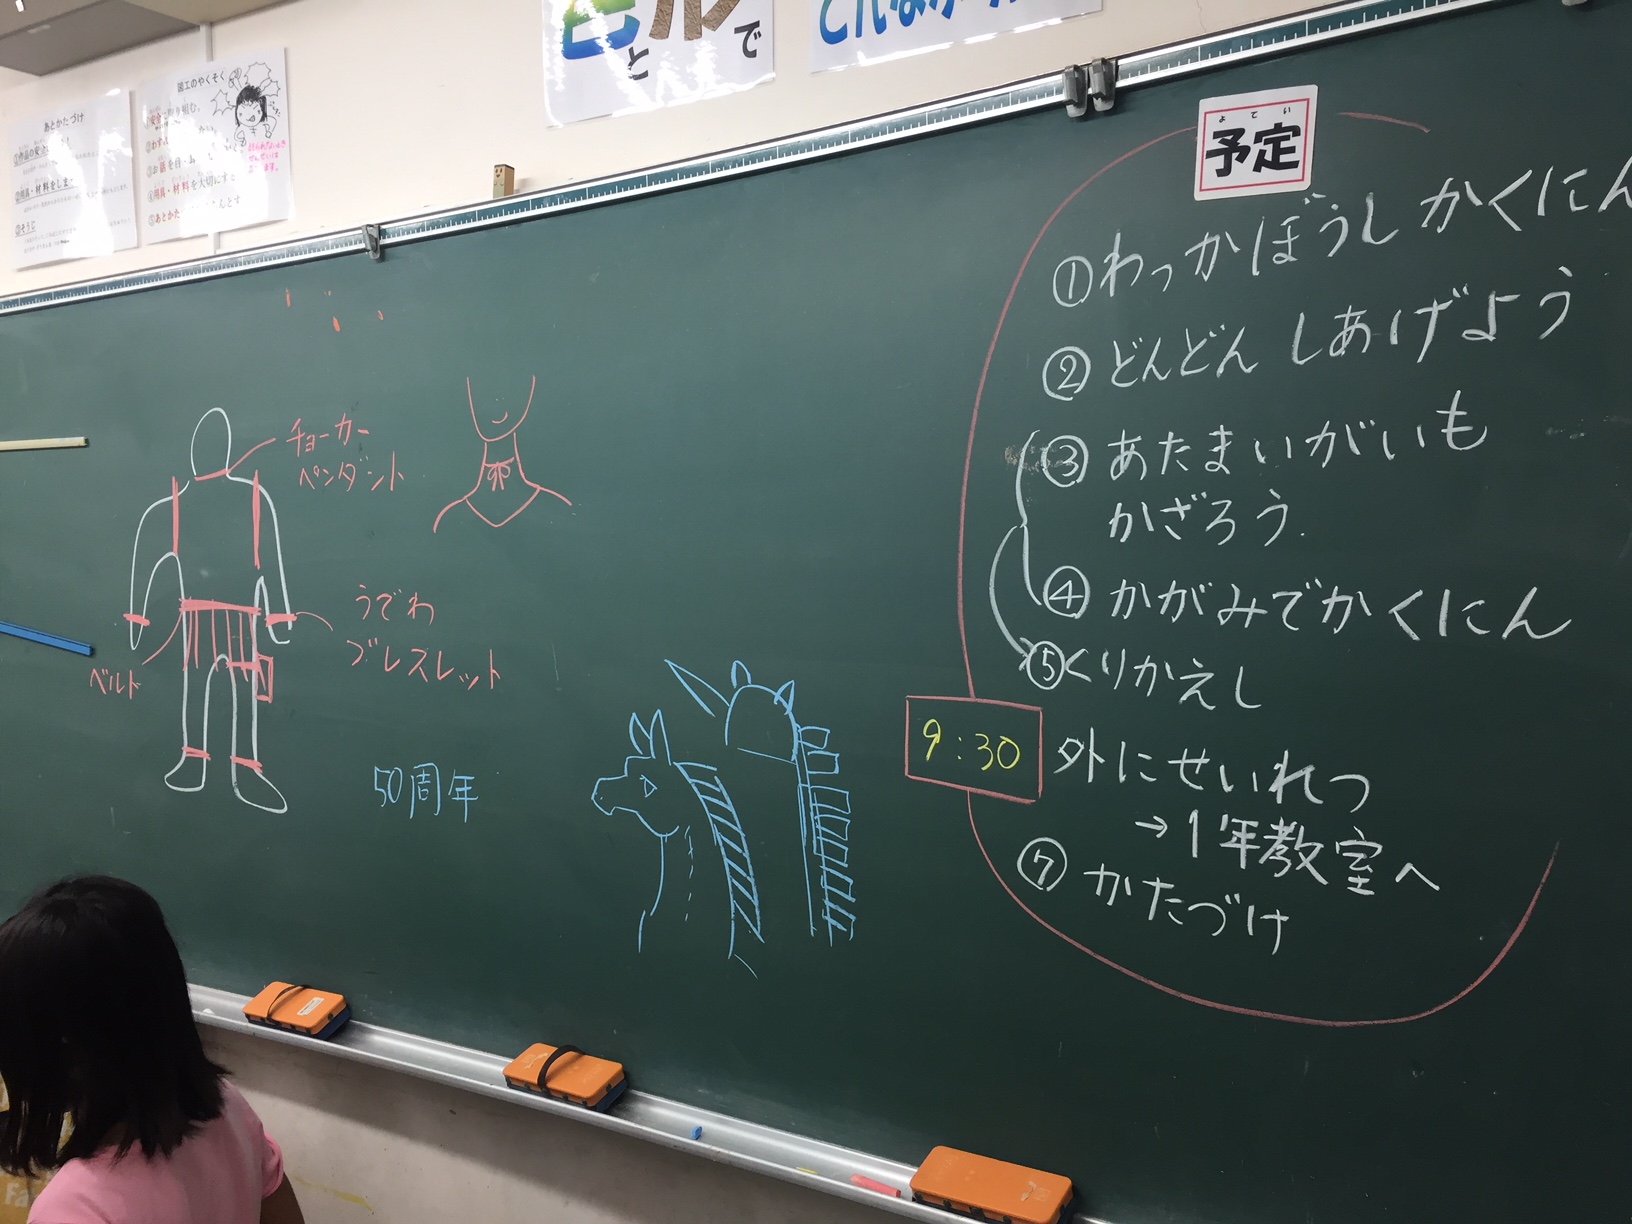 あとかたづけ
③そうじ
図工のやくそく
④用具・材料を大切にする
色と形で
予定
よてい
①わっかぼうし かくにん
②どんどん しあげよう
③あたまいがいも
かざろう。
④かがみでかくにん
⑤くりかえし
9:30 外にせいれつ
→1年教室へ
⑦かたづけ
チョーカー
ペンダント
うでわ
ブレスレット
ベルト
50周年